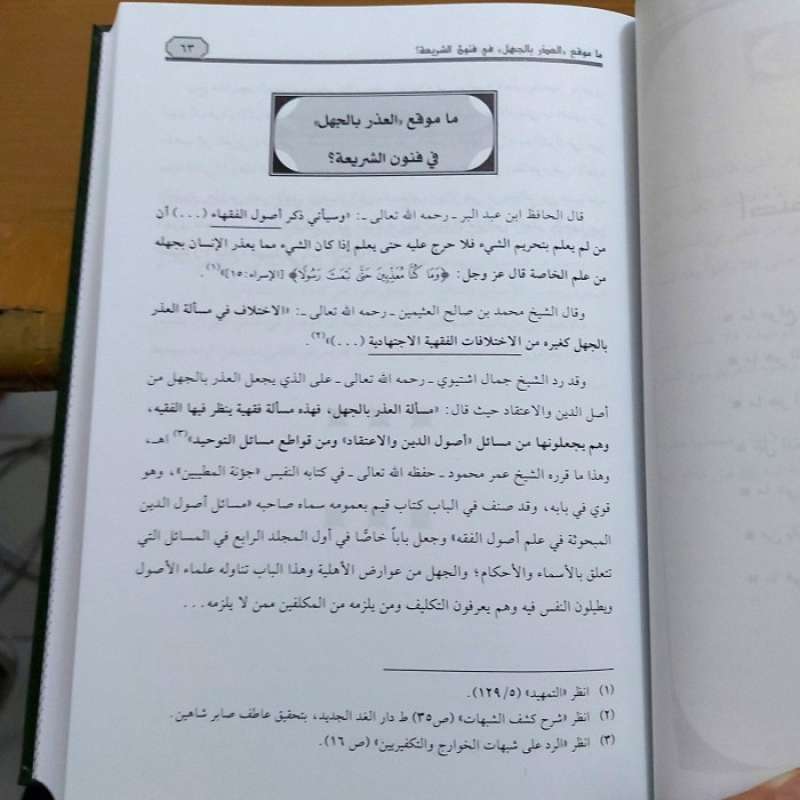 ما موقع «العذر بالجهل» في فنون الشريعة؟
٦٣
ما موقع «العذر بالجهل»
في فنون الشريعة؟
قال الحافظ ابن عبد البر ـ رحمه الله تعالى ـ: «وسيأتي ذكر أصول الفقهاء (...) أن
من لم يعلم بتحريم الشيء فلا حرج عليه حتى يعلم إذا كان الشيء مما يعذر الإنسان بجهله
من علم الخاصة قال عز وجل: ﴿وَمَا كُنَّا مُعَذِّبِينَ حَتَّىٰ نَبْعَثَ رَسُولًا﴾ [الإسراء: ١٥]»(١).
وقال الشيخ محمد بن صالح العثيمين ـ رحمه الله تعالى ـ: «الاختلاف في مسألة العذر
بالجهل كغيره من الاختلافات الفقهية الاجتهادية (...)»(٢).
وقد رد الشيخ جمال اشتيوي ـ رحمه الله تعالى ـ على الذي يجعل العذر بالجهل من
أصل الدين والاعتقاد حيث قال: «مسألة العذر بالجهل، فهذه مسألة فقهية ينظر فيها الفقيه،
وهم يجعلونها من مسائل «أصول الدين والاعتقاد» ومن قواطع مسائل التوحيد»(٣) اهـ،
وهذا ما قرره الشيخ عمر محمود ـ حفظه الله تعالى ـ في كتابه النفيس «جؤنة المطيبين»، وهو
قوي في بابه، وقد صنف في الباب كتاب قيم بعمومه سماه صاحبه «مسائل أصول الدين
المبحوثة في علم أصول الفقه» وجعل باباً خاصًّا في أول المجلد الرابع في المسائل التي
تتعلق بالأسماء والأحكام؛ والجهل من عوارض الأهلية وهذا الباب تناوله علماء الأصول
ويطيلون النفس فيه وهم يعرفون التكليف ومن يلزمه من المكلفين ممن لا يلزمه...
(١) انظر «التمهيد» (٥/ ١٢٩).
(٢) انظر «شرح كشف الشبهات» (ص٣٥) ط دار الغد الجديد، بتحقيق عاطف صابر شاهين.
(٣) انظر «الرد على شبهات الخوارج والتكفيريين» (ص ١٦).